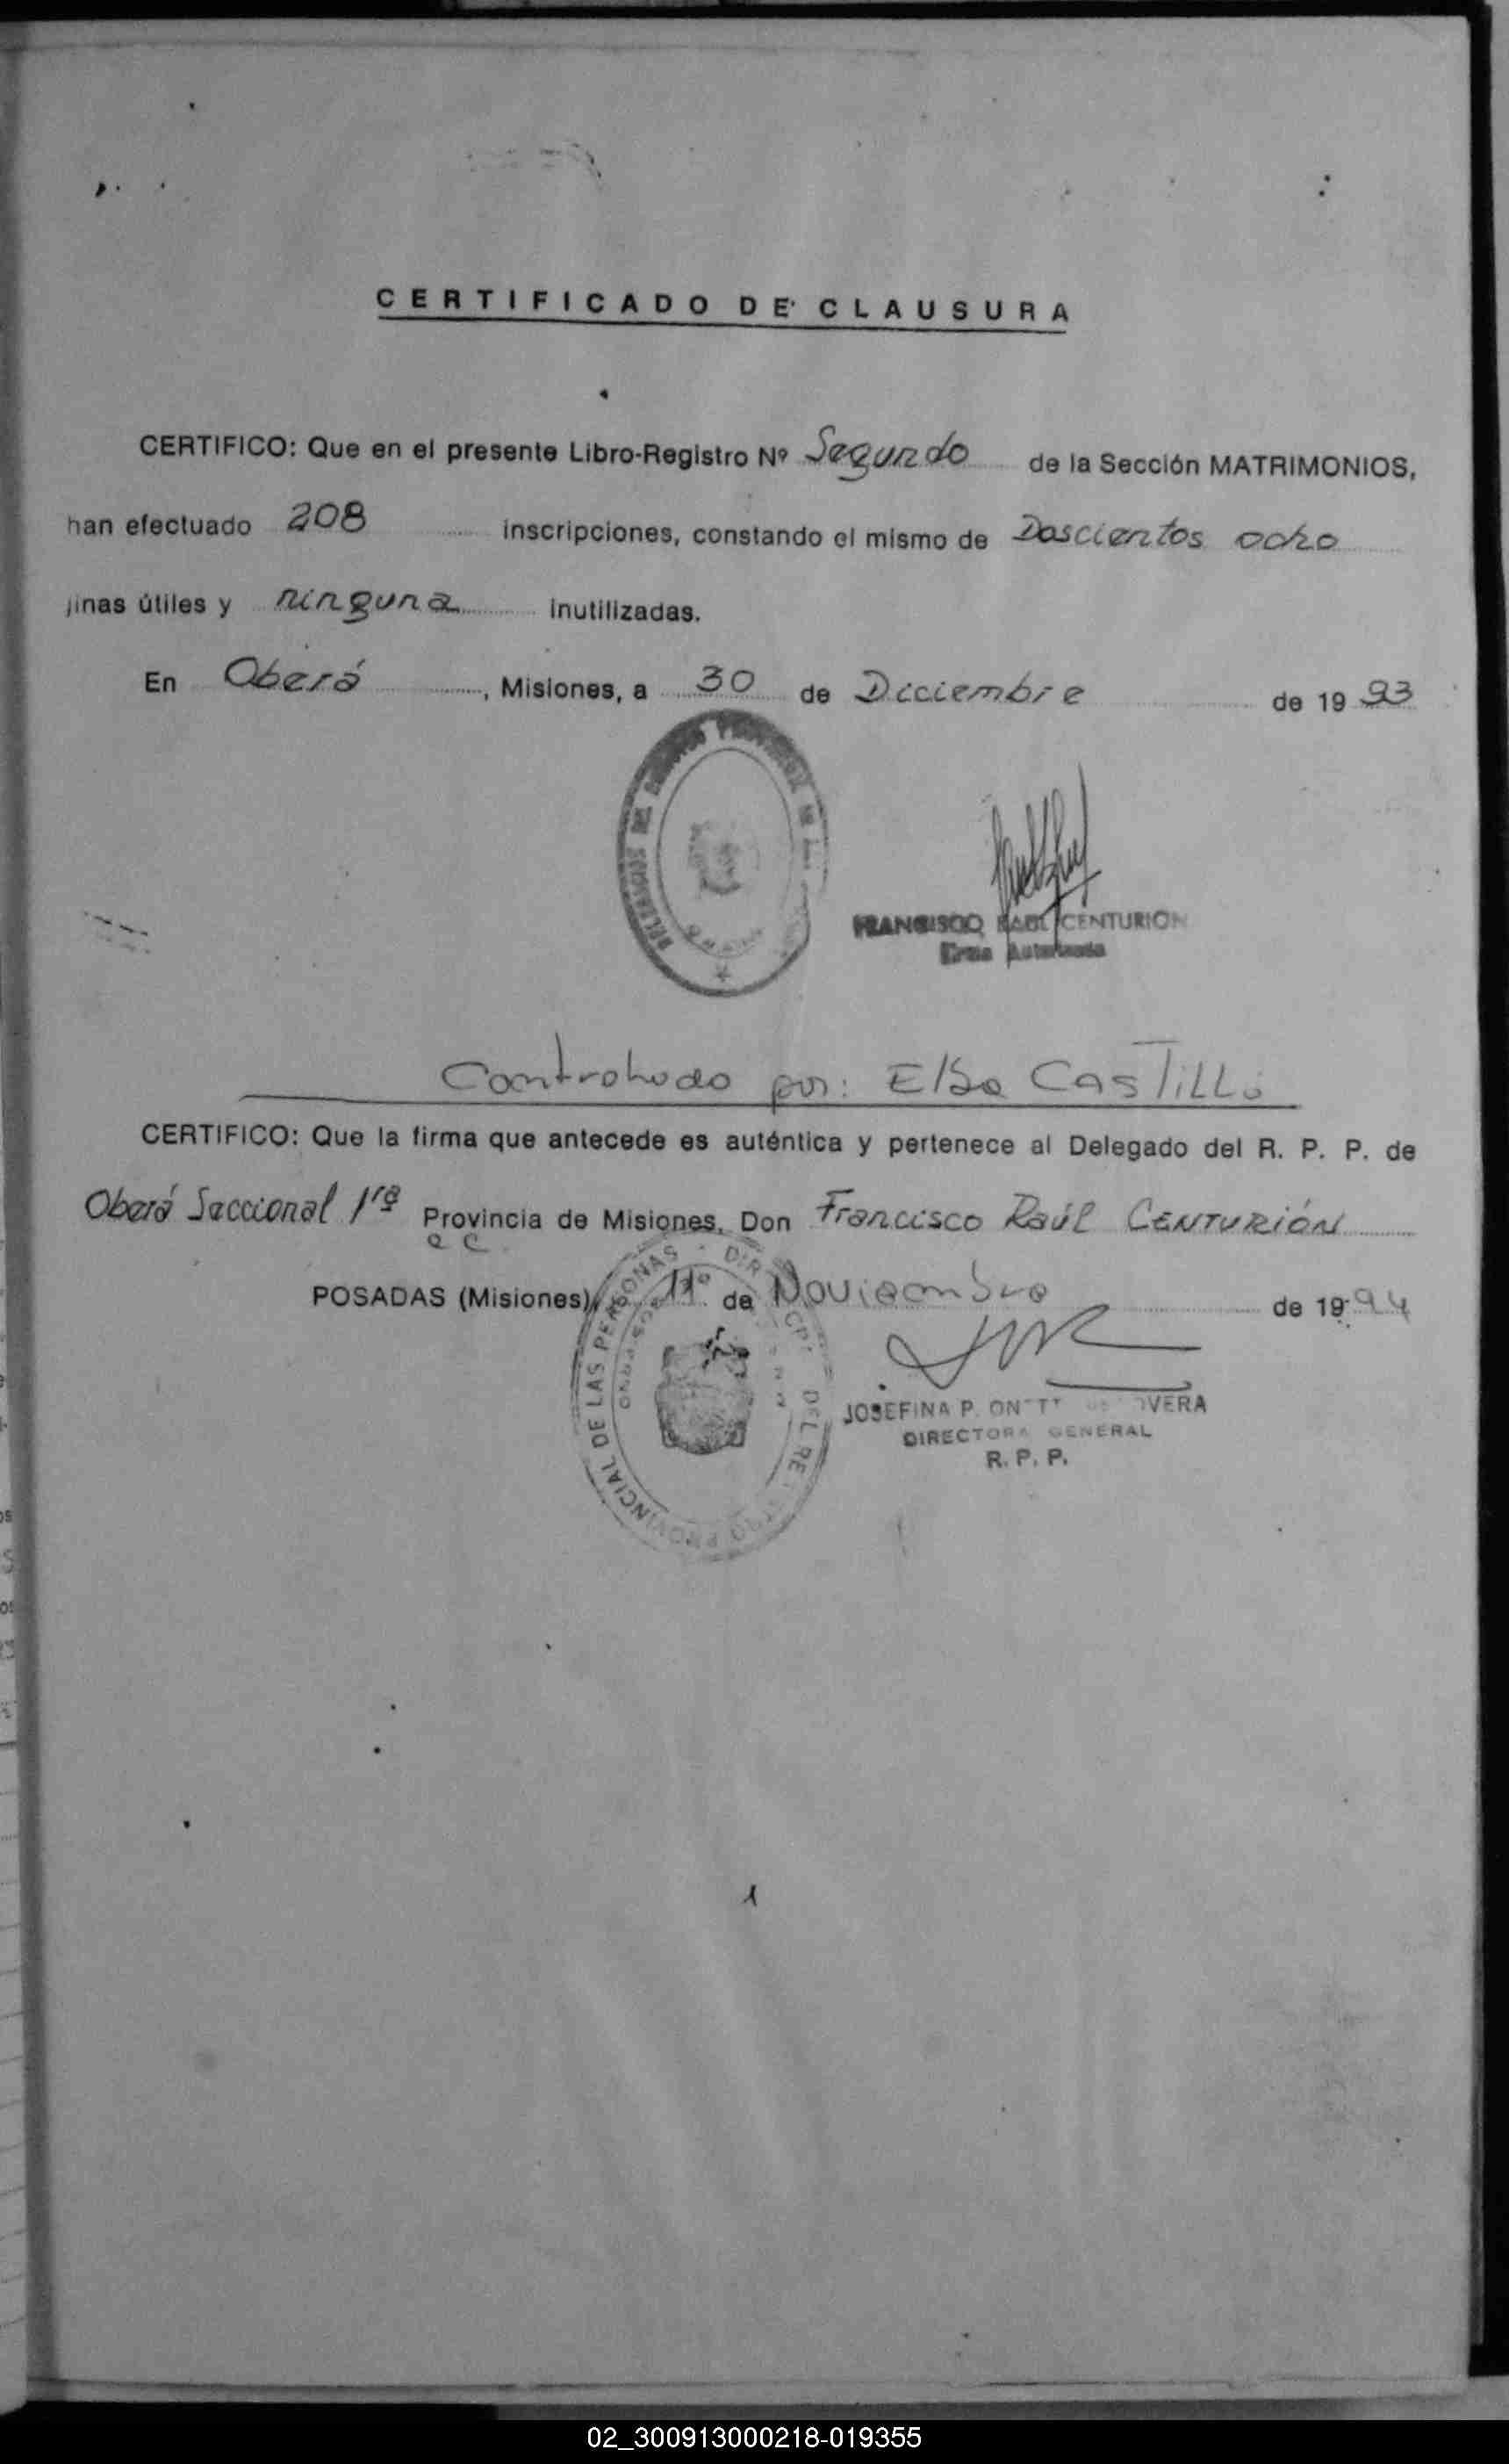 CERTIFICADO DE CLAUSURA
CERTIFICO: Que en el presente Libro-Registro Nº Segundo de la Sección MATRIMONIOS,
han efectuado 208 inscripciones, constando el mismo de Doscientos ocho
jinas útiles y ninguna inutilizadas.
En Oberá, Misiones, a 30 de Diciembre de 1993
FRANCISCO RAUL CENTURION
Controlado por: Elsa Castillo
CERTIFICO: Que la firma que antecede es auténtica y pertenece al Delegado del R. P. P. de
Oberá Seccional 1ra Provincia de Misiones, Don Francisco Raúl CENTURIÓN
POSADAS (Misiones), 11º de Noviembre de 1994
PROVINCIAL DE LAS PERSONAS
JOSEFINA P.
DIRECTORA GENERAL
R. P. P.
02_300913000218-019355